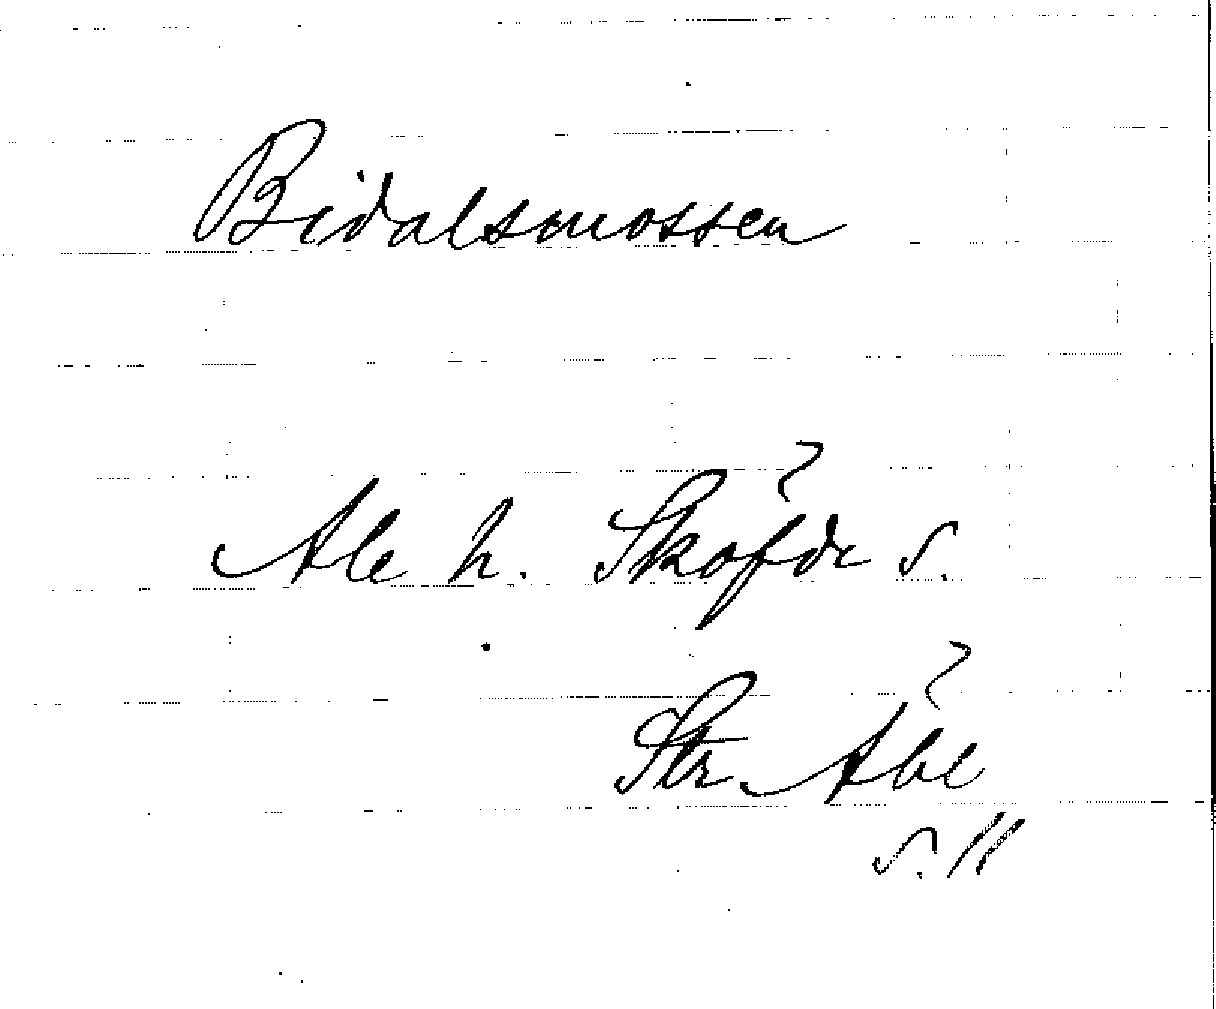 Bidalsmossen
Ale h. Sköfde s.
Str. Åbe
s. 11